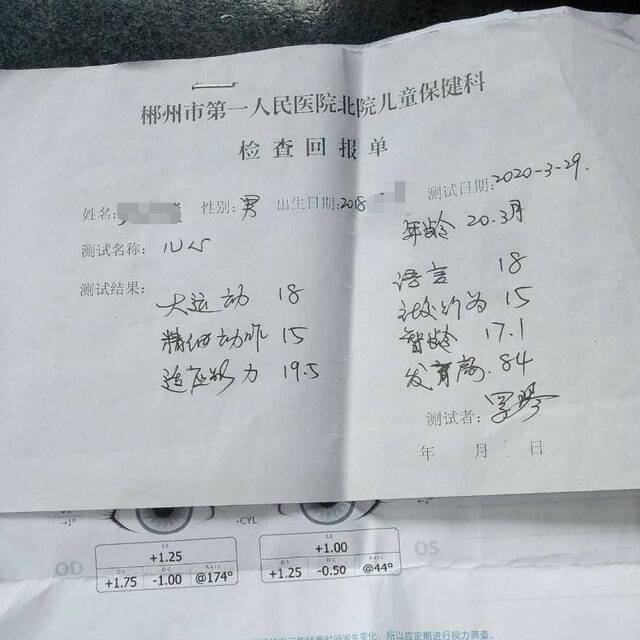 郴州市第一人民医院北院儿童保健科
检查回报单
姓名: 性别: 男 出生日期: 2018 测试日期: 2020-3-29.
年龄 20.3月
测试名称: 儿心
测试结果:
大运动 18 语言 18
精细动作 15 社交行为 15
适应能力 19.5 智龄 17.1
发育商. 84
测试者:
年 月 日
+1° -CYL +1°
OD SE +1.25 SE +1.00 OS
DS DC Axis DS DC Axis
+1.75 -1.00 @174° +1.25 -0.50 @44°
随着时间发生变化, 所以应定期进行视力筛查。